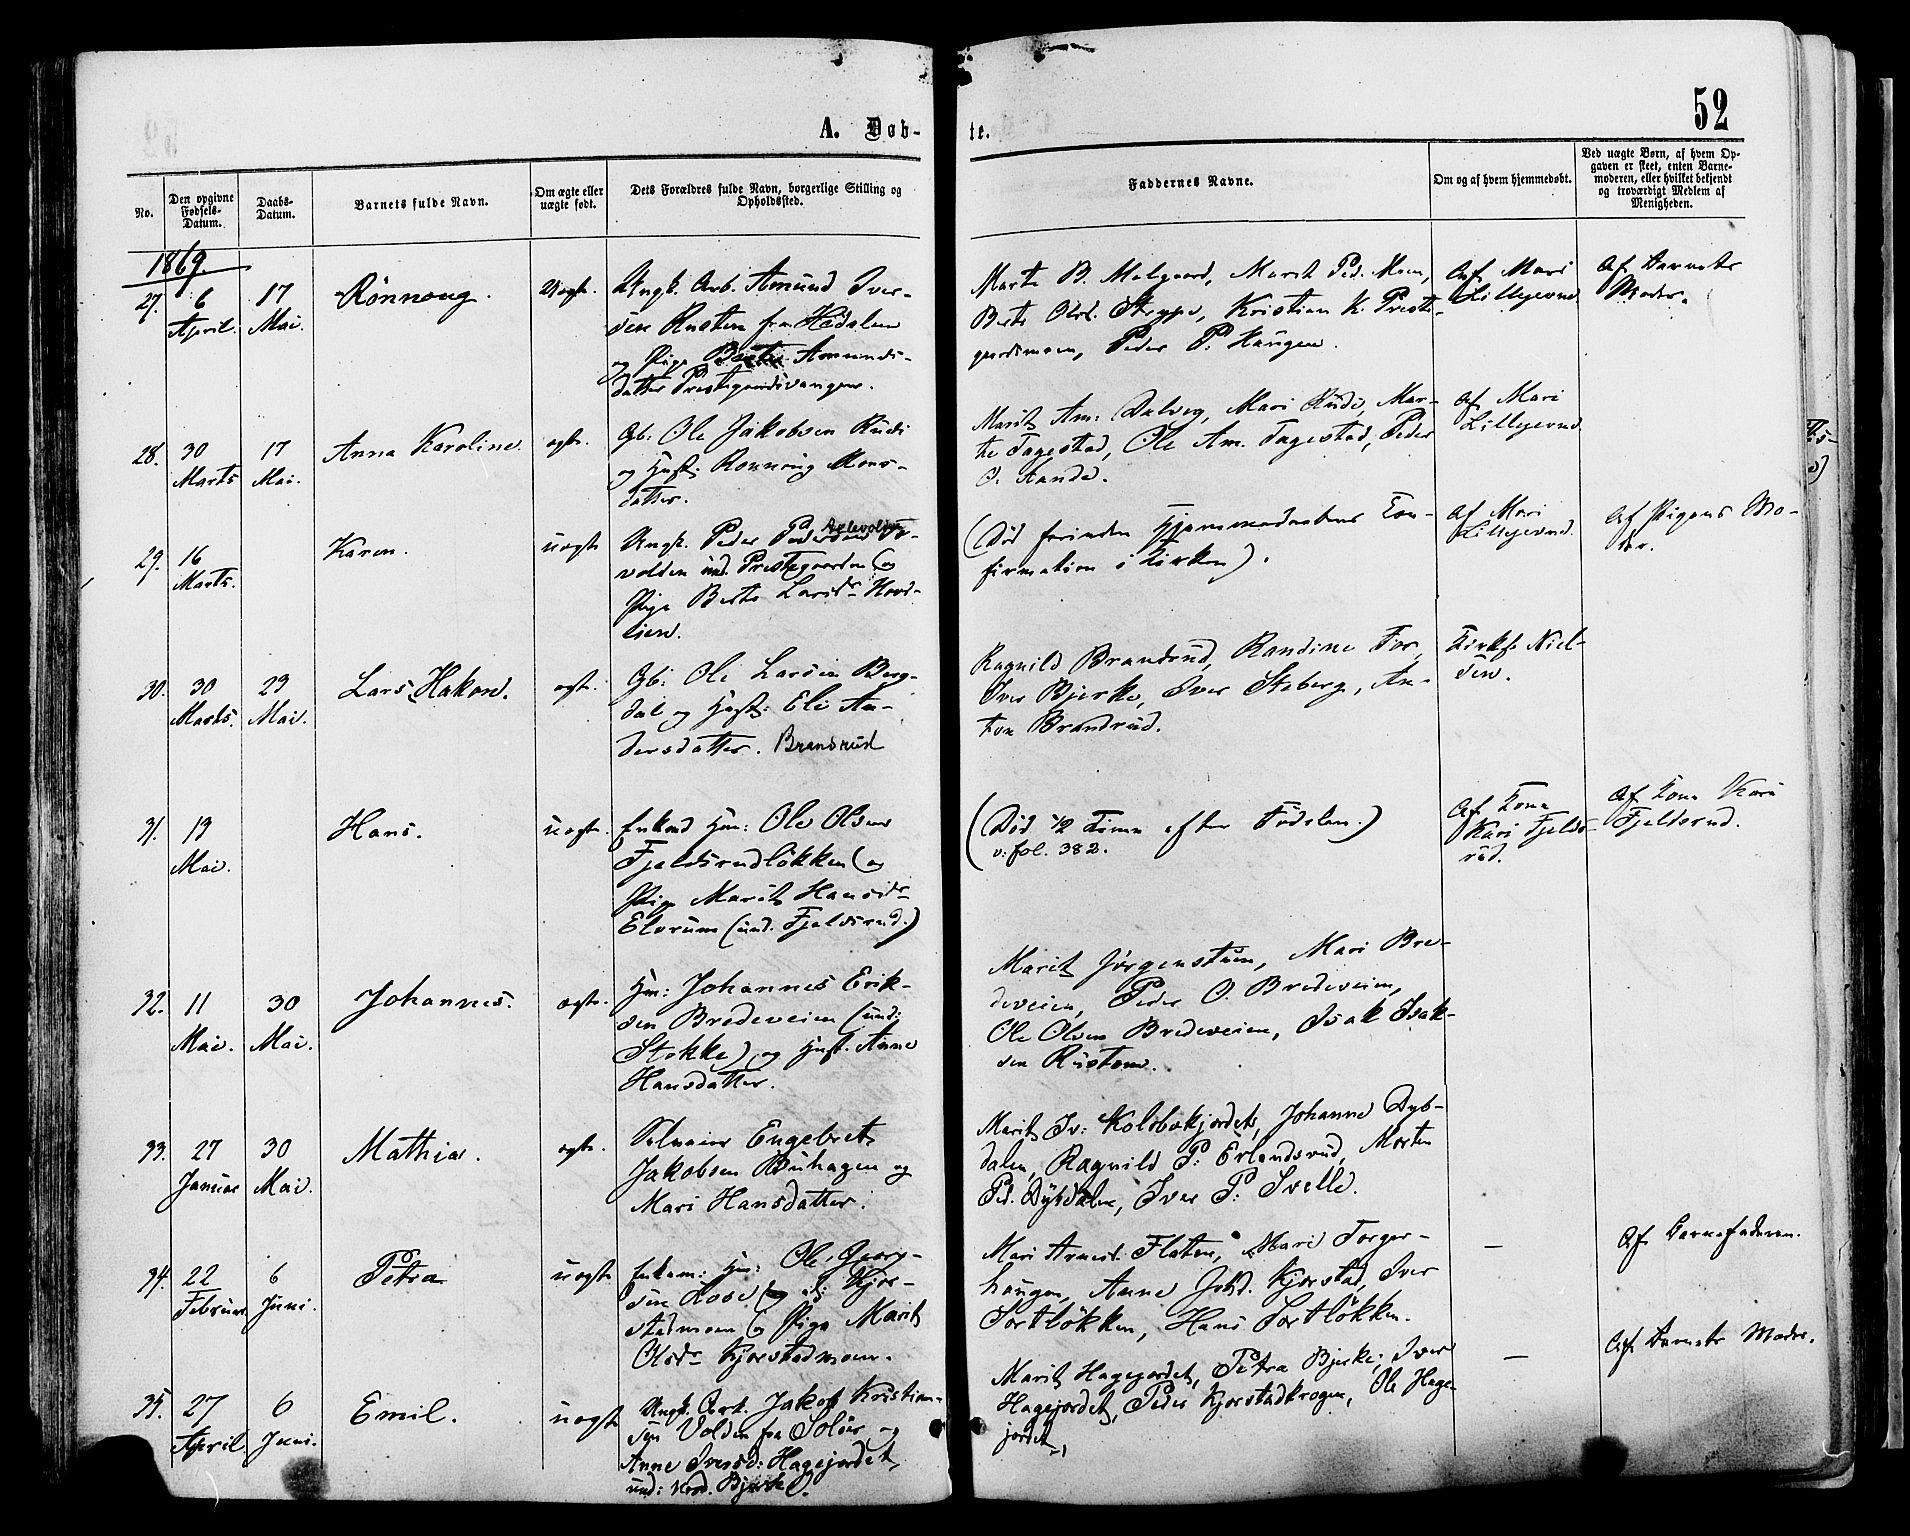 52
A. Døb-
te.
No.
Den opgivne
Fødsels-
Datum.
Daabs-
Datum.
Barnets fulde Navn.
Om ægte eller
uægte født.
Dets Forældres fulde Navn, borgerlige Stilling og
Opholdssted.
Faddernes Navne.
Om og af hvem hjemmedøbt.
Ved uægte Børn, af hvem Op-
gaven er skeet, enten Barne-
moderen, eller hvilket bekjendt
og troværdigt Medlem af
Menigheden.
1869.
27. 6 April. 17 Mai. Rønnoug. Uægt.
Ungk. Arb. Amund Iver-
sen Rusten fra Hedalen
og Pige Berte Amunds-
datter Prestegardsvangen.
Marte B. Melgaard, Marit Ped. Moen,
Berte Olsd. Strype, Kristian K. Preste-
gardsmoen, Peder P. Haugen.
Af Mari
Lillejevnd
Af Barnets
Moder.
28. 30 Marts 17 Mai. Anna Karoline. ægte.
Gb: Ole Jakobsen Rudi
og Hust. Rønnoug Mons-
datter.
Marit Am: Dalveg, Mari Rudi, Mar-
te Tagestad, Ole Am. Tagestad, Peder
O. Sande.
Af Mari
Lillejevnd
29. 16 Marts. Karen. uægte
Ungk. Peder Pedersen
volden und. Prestegaarden (og
Pige Berte Larsdr Hovd-
lien.
(Død forinden Hjemmedaabens Con-
firmation i Kirken).
Af Mari
Lillejevnd.
Af Pigens Mo-
der.
30. 30 Marts. 23 Mai. Lars Hakon. ægte.
Gb: Ole Larsen Berg-
dal og Hust: Eli An-
dersdatter. Brandrud
Ragnild Brandrud, Randine For,
Iver Bjerke, Iver Staberg, An-
ton Brandrud.
Kirks. Niel-
sen.
31. 13 Mai. Hans. uægte.
Enkmd Hm: Ole Olsen
Fjeldsrudløkken (og
Pige Marit Hansdr
Elvrum (und. Fjeldsrud.)
(Død 1/2 Time efter Fødslen.)
v: fol. 382.
Af Kona
Kari Fjelds-
rud.
Af Kona Kari
Fjeldsrud.
32. 11 Mai. 30 Mai. Johannes. ægte.
Hm: Johannes Erik-
sen Bredeveien (und:
Stokke) og Hust. Anne
Hansdatter.
Marit Jørgenstuen, Mari Bre-
deveien, Peder O. Bredeveien,
Ole Olsen Bredeveien, Isak Isak-
sen Rusten.
33. 27 Januar 30 Mai. Mathia. ægte.
Selveier Engebret
Jakobsen Buhagen og
Mari Hansdatter.
Marit Iv: Kolobekjordet, Johanne Dyb-
dalen, Ragnild P: Erlandsrud, Morten
Ped. Dybdalen, Iver P: Svelle.
34. 22 Februar 6 Juni. Petra uægte
Enkem: Hm: Ole Georg-
sen Lose (og
stadmoen (og Pige Marit
Olsdr Kjorstadmoen.
Mari Arnesd. Flaten, Mari Torger-
haugen, Anne Johd. Kjorstad, Iver
Sortløkken, Hans Sortløkken.
—
Af Barnefaderen.
35. 27 April 6 Juni. Emil. uægte
Ungk. Arb. Jakob Kristian-
sen Volden fra Solør og
Anne Iversd: Hagejordet,
und: Nord. Bjerke.
Marit Hagejordet, Petra Bjerke, Iver
Hagejordet, Peder Kjorstadkrogen, Ole Hage-
jordet.
—
Af Barnets Moder.